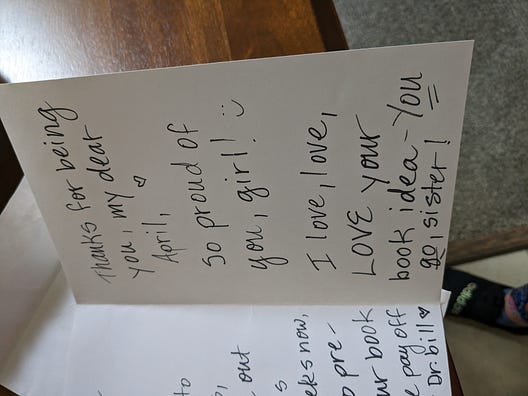 to
out
s
eks now,
o pre-
ur book
e pay off
Dr. Bill ♥
Thanks for being
you, my dear ♡
April,
So proud of
you, girl! :)
I love, love,
LOVE your
book idea - You
go, sister!